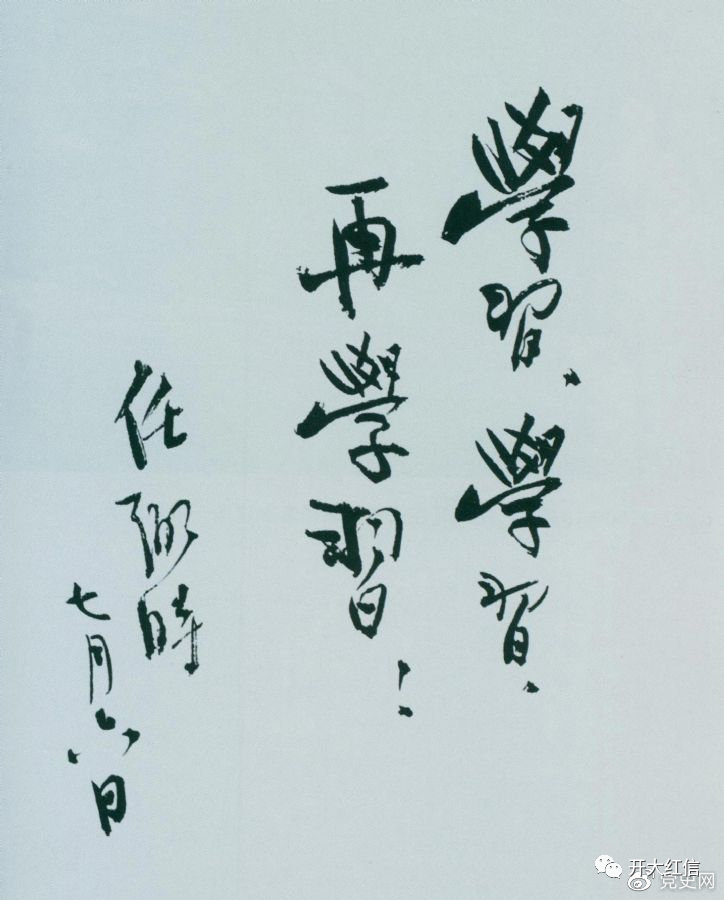 學習、學習、
再學習！
任弼時
七月六日
开大红信
党史网